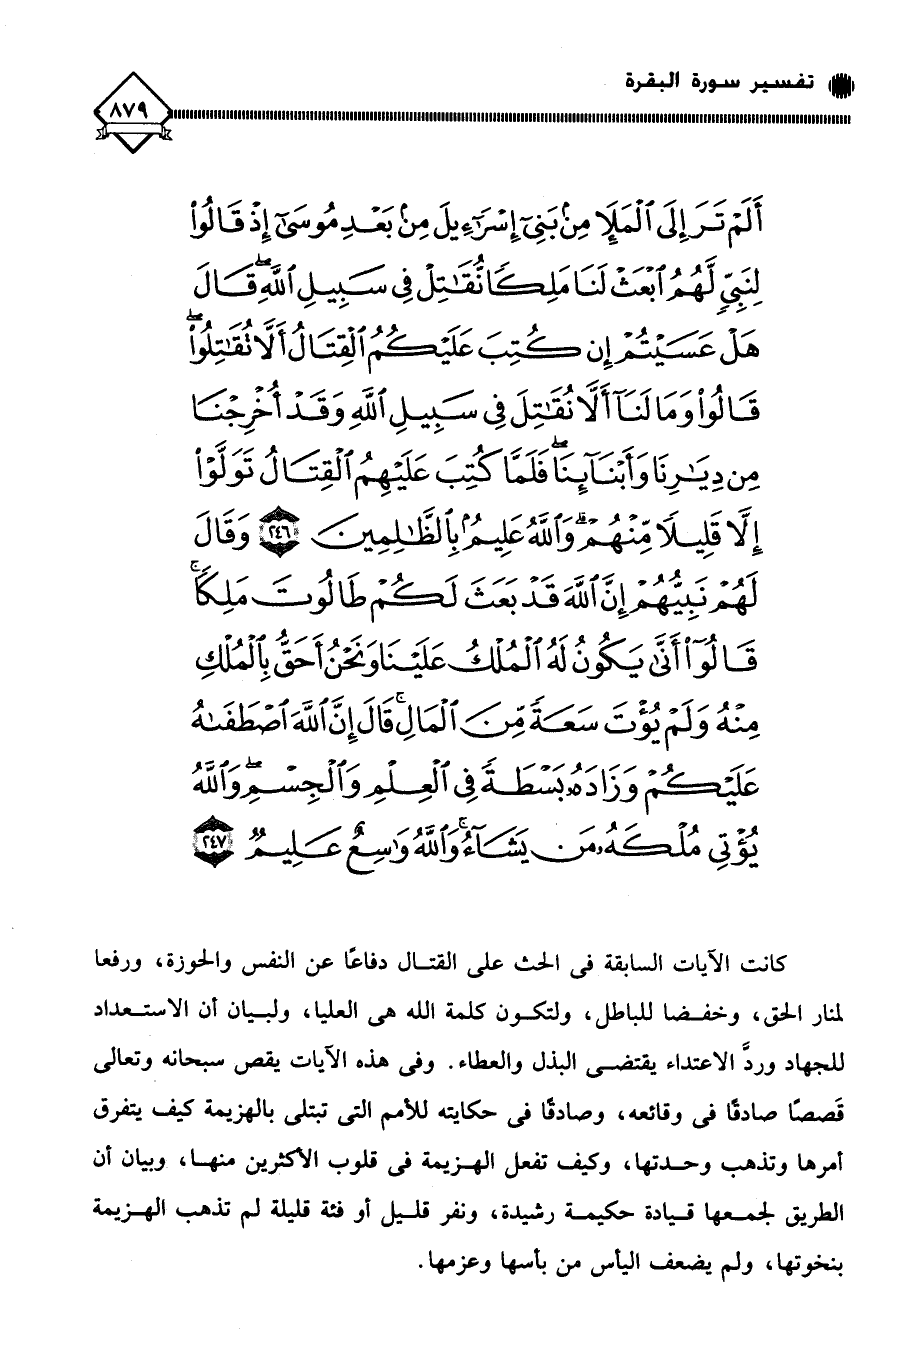 تفسير سورة البقرة
٨٧٩
أَلَمْ تَرَ إِلَى ٱلْمَلَإِ مِنۢ بَنِىٓ إِسْرَٰٓءِيلَ مِنۢ بَعْدِ مُوسَىٰٓ إِذْ قَالُوا۟
لِنَبِىٍّ لَّهُمُ ٱبْعَثْ لَنَا مَلِكًا نُّقَٰتِلْ فِى سَبِيلِ ٱللَّهِ ۖ قَالَ
هَلْ عَسَيْتُمْ إِن كُتِبَ عَلَيْكُمُ ٱلْقِتَالُ أَلَّا تُقَٰتِلُوا۟ ۖ
قَالُوا۟ وَمَا لَنَآ أَلَّا نُقَٰتِلَ فِى سَبِيلِ ٱللَّهِ وَقَدْ أُخْرِجْنَا
مِن دِيَٰرِنَا وَأَبْنَآئِنَا ۖ فَلَمَّا كُتِبَ عَلَيْهِمُ ٱلْقِتَالُ تَوَلَّوْا۟
إِلَّا قَلِيلًا مِّنْهُمْ ۗ وَٱللَّهُ عَلِيمٌۢ بِٱلظَّٰلِمِينَ ٢٤٦ وَقَالَ
لَهُمْ نَبِيُّهُمْ إِنَّ ٱللَّهَ قَدْ بَعَثَ لَكُمْ طَالُوتَ مَلِكًا ۚ
قَالُوٓا۟ أَنَّىٰ يَكُونُ لَهُ ٱلْمُلْكُ عَلَيْنَا وَنَحْنُ أَحَقُّ بِٱلْمُلْكِ
مِنْهُ وَلَمْ يُؤْتَ سَعَةً مِّنَ ٱلْمَالِ ۚ قَالَ إِنَّ ٱللَّهَ ٱصْطَفَىٰهُ
عَلَيْكُمْ وَزَادَهُۥ بَسْطَةً فِى ٱلْعِلْمِ وَٱلْجِسْمِ ۖ وَٱللَّهُ
يُؤْتِى مُلْكَهُۥ مَن يَشَآءُ ۚ وَٱللَّهُ وَٰسِعٌ عَلِيمٌ ٢٤٧
كانت الآيات السابقة فى الحث على القتال دفاعًا عن النفس والحوزة، ورفعا
لمنار الحق، وخفضا للباطل، ولتكون كلمة الله هى العليا، ولبيان أن الاستعداد
للجهاد وردَّ الاعتداء يقتضى البذل والعطاء. وفى هذه الآيات يقص سبحانه وتعالى
قَصصًا صادقًا فى وقائعه، وصادقًا فى حكايته للأمم التى تبتلى بالهزيمة كيف يتفرق
أمرها وتذهب وحدتها، وكيف تفعل الهزيمة فى قلوب الأكثرين منها، وبيان أن
الطريق لجمعها قيادة حكيمة رشيدة، ونفر قليل أو فئة قليلة لم تذهب الهزيمة
بنخوتها، ولم يضعف اليأس من بأسها وعزمها.